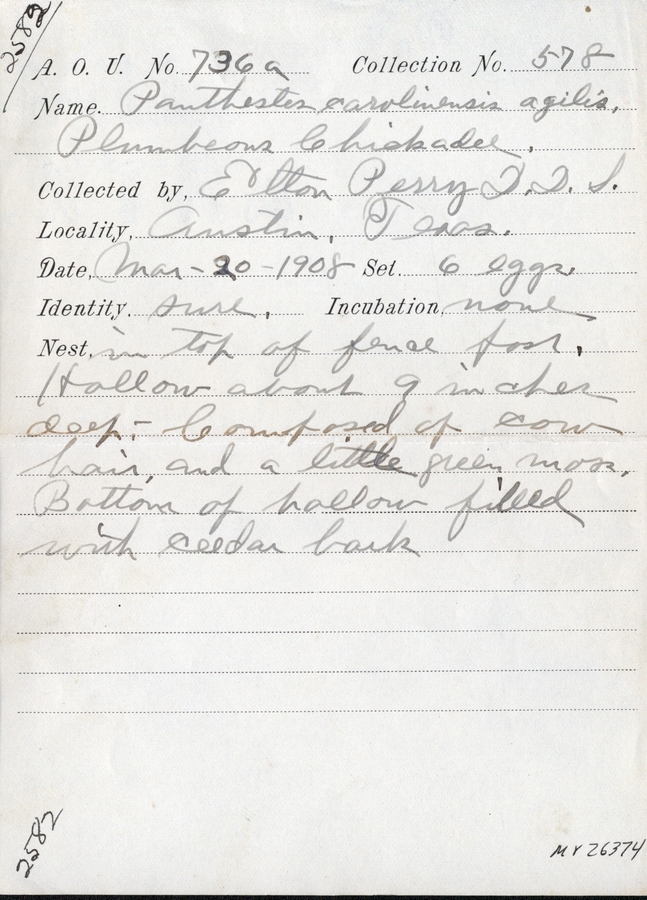 2582
A. O. U. No. 736a Collection No. 578
Name. Panthestes carolinensis agilis,
Plumbeous Chickadee,
Collected by, Elton Perry D.D.S.
Locality, Austin, Texas.
Date, Mar-20-1908 Set. 6 eggs.
Identity. sure, Incubation, none
Nest, in top of fence post,
Hollow about 9 inches
deep,- Composed of cow
hair, and a little green moss,
Bottom of hollow filled
with ceedar bark
2582
MY 26374